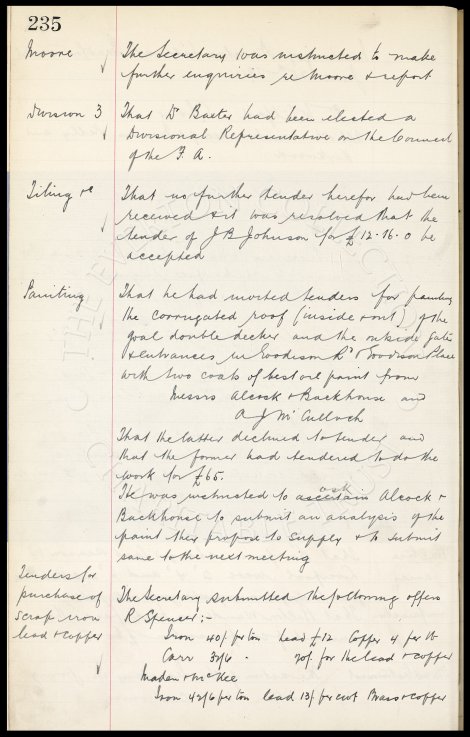 235
Moore
The Secretary was instructed to make
further enquiries re Moore & report
Division 3
That Dr Baxter had been elected a
Divisional Representative on the Council
of the F. A.
Tiling &c
That no further tender herefor had been
received & it was resolved that the
tender of J B Johnson for £12-16-0 be
accepted
Painting
That he had invited tenders for painting
the corrugated roof (inside & out) of the
goal double decker and the outside gates
& entrances in Goodison Rd & Goodison Place
with two coats of best oil paint from
Messrs Alcock & Backhouse and
A J McCulloch
That the latter declined to tender and
that the former had tendered to do the
work for £65.
He was instructed to ascertain ask Alcock &
Backhouse to submit an analysis of the
paint they propose to supply & to submit
same to the next meeting
Tenders for
purchase of
scrap iron
lead & copper
The Secretary submitted the following offers
R Spenser:-
Iron 40/- per ton lead £12 Copper 4 per lb
Carr 32/6 - 70/- for the lead & copper
Maden & McKee
Iron 42/6 per ton lead 13/- per cwt Brass & copper